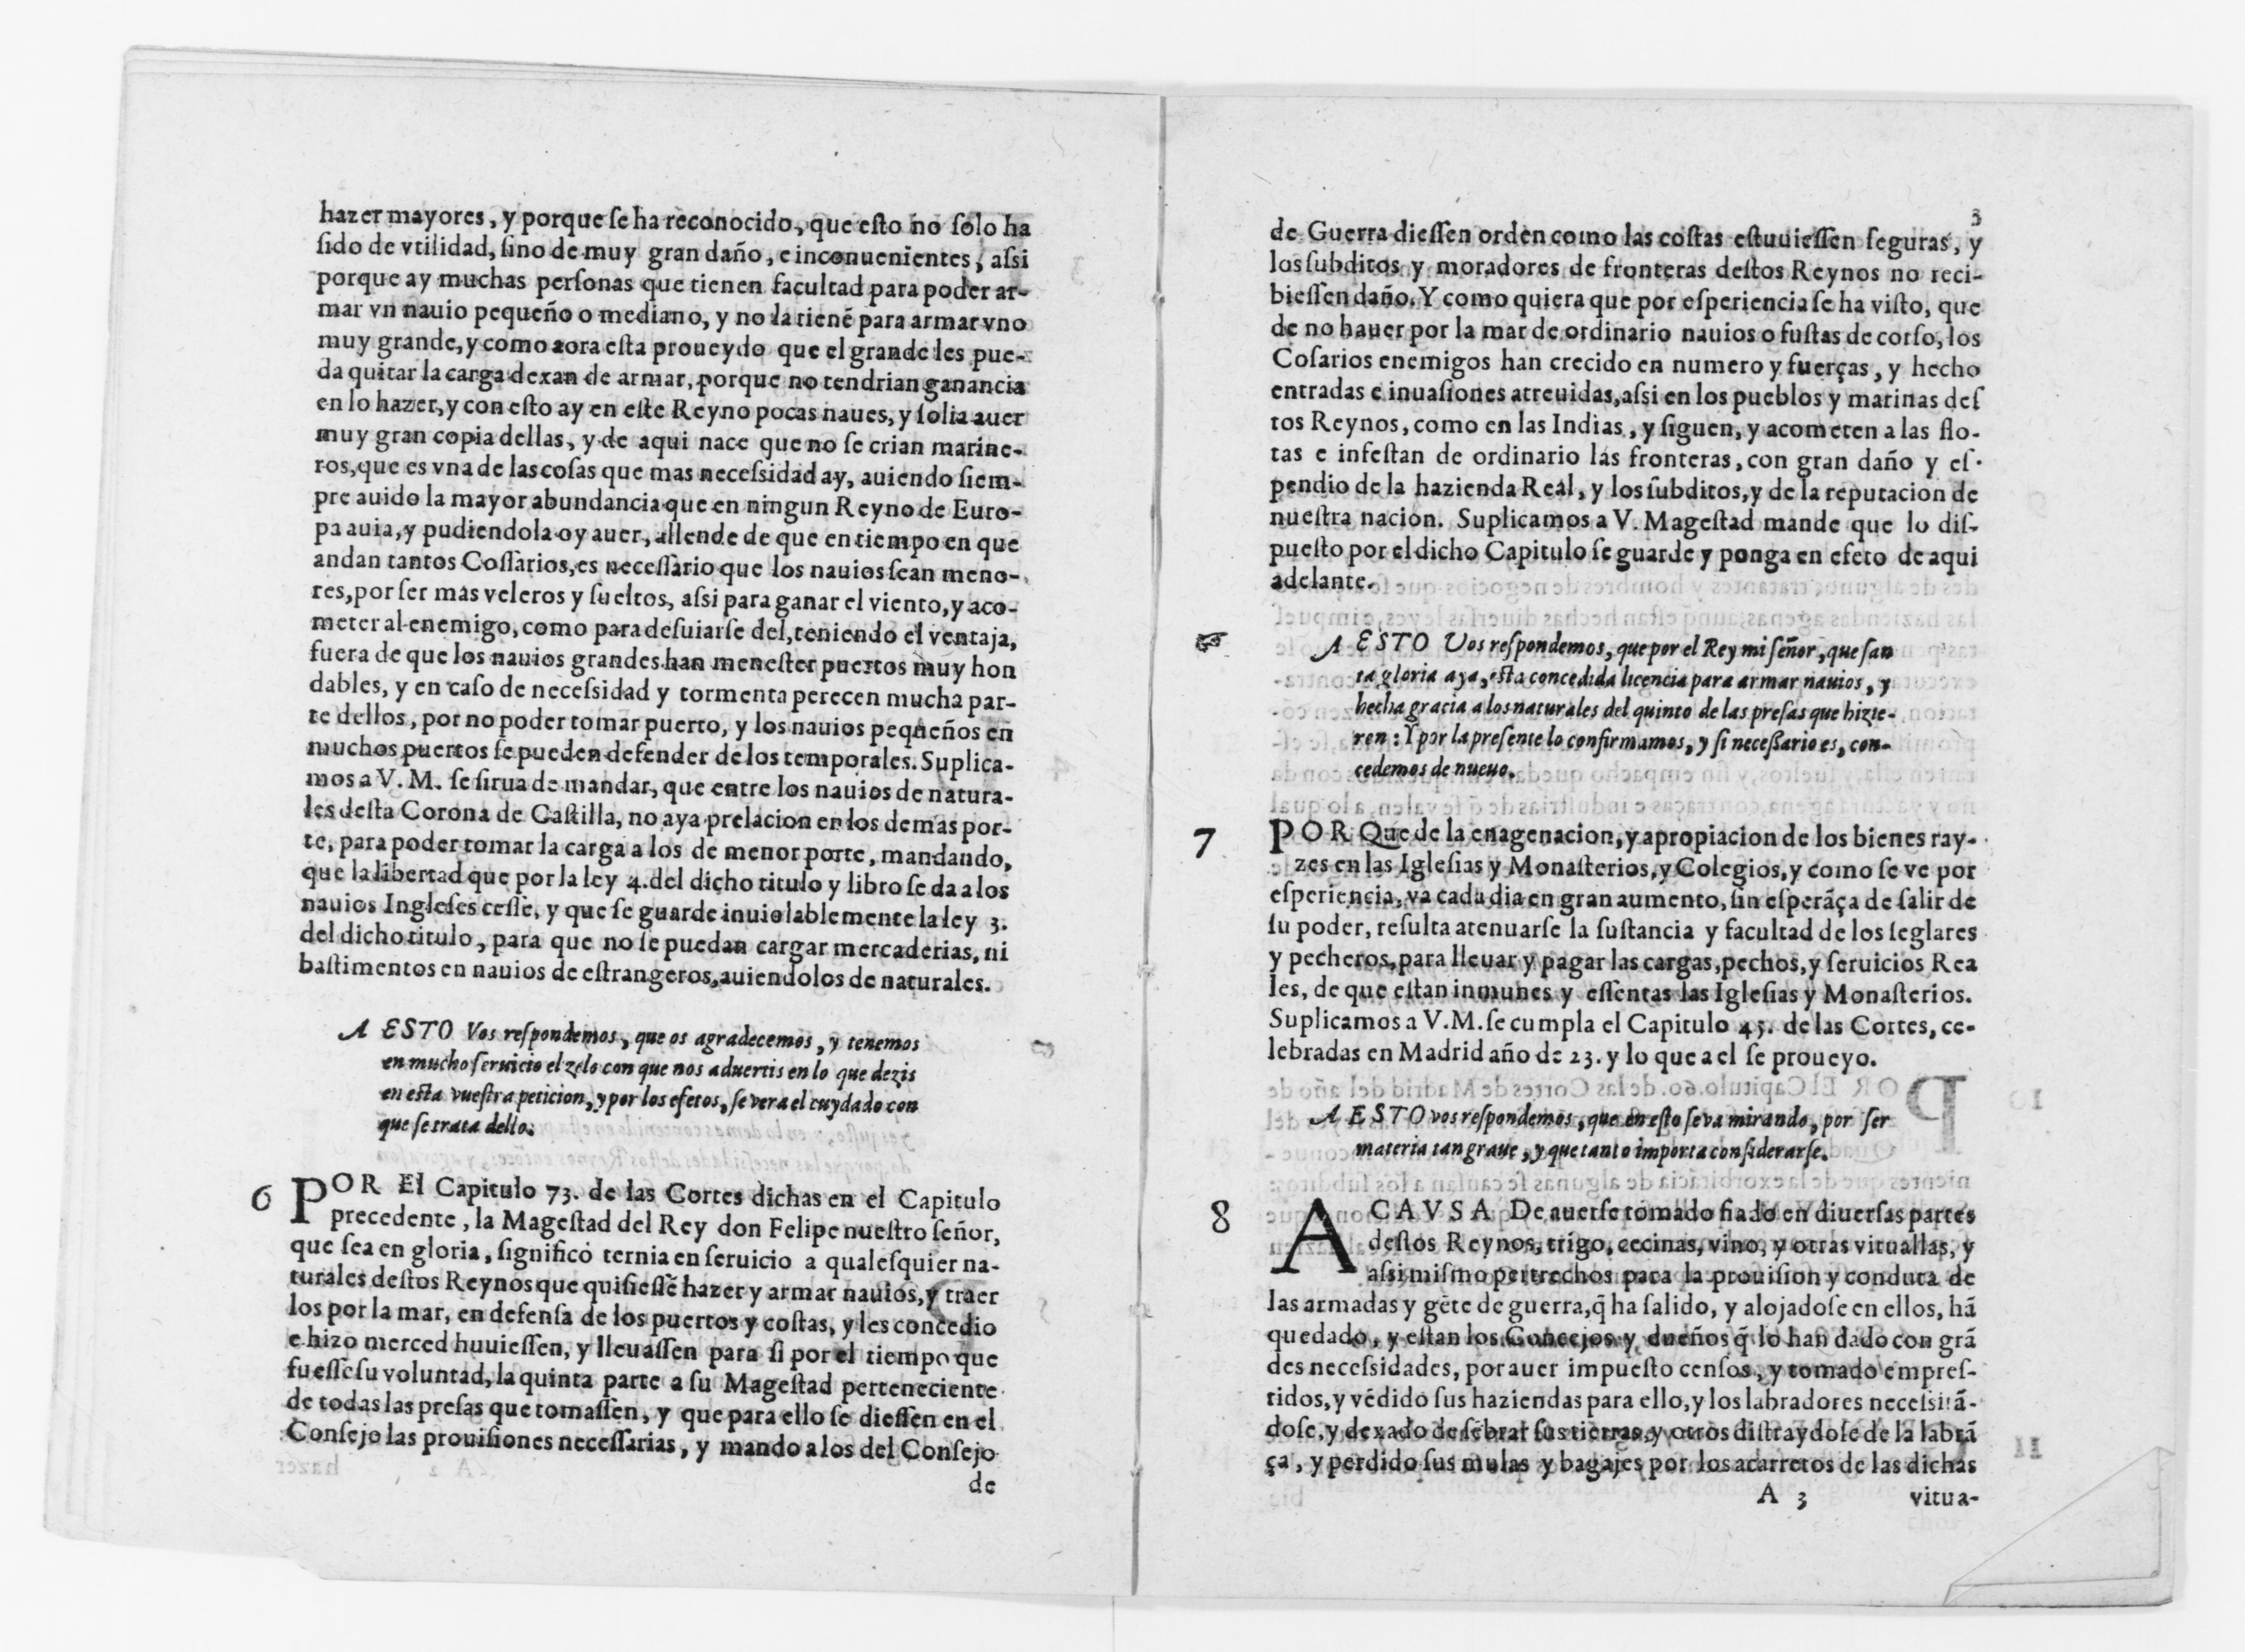 hazer mayores, y porque ſe ha reconocido, que eſto no ſolo ha
ſido de vtilidad, ſino de muy gran daño, e inconuenientes, aſsi
porque ay muchas perſonas que tienen facultad para poder ar-
mar vn nauio pequeño o mediano, y no la tienẽ para armar vno
muy grande, y como aora eſta proueydo que el grande les pue-
da quitar la carga dexan de armar, porque no tendrian ganancia
en lo hazer, y con eſto ay en eſte Reyno pocas naues, y ſolia auer
muy gran copia dellas, y de aqui nace que no ſe crian marine-
ros, que es vna de las coſas que mas neceſsidad ay, auiendo ſiem-
pre auido la mayor abundancia que en ningun Reyno de Euro-
pa auia, y pudiendola oy auer, allende de que en tiempo en que
andan tantos Coſſarios, es neceſſario que los nauios ſean meno-
res, por ſer mas veleros y ſueltos, aſsi para ganar el viento, y aco-
meter al enemigo, como para deſuiarſe del, teniendo el ventaja,
fuera de que los nauios grandes han meneſter puertos muy hon
dables, y en caſo de neceſsidad y tormenta perecen mucha par-
te dellos, por no poder tomar puerto, y los nauios pequeños en
muchos puertos ſe pueden defender de los temporales. Suplica-
mos a V. M. ſe ſirua de mandar, que entre los nauios de natura-
les deſta Corona de Caſtilla, no aya prelacion en los demas por-
te, para poder tomar la carga a los de menor porte, mandando,
que la libertad que por la ley 4. del dicho titulo y libro ſe da a los
nauios Ingleſes ceſſe, y que ſe guarde inuiolablemente la ley 3.
del dicho titulo, para que no ſe puedan cargar mercaderias, ni
baſtimentos en nauios de eſtrangeros, auiendolos de naturales.
A ESTO Vos reſpondemos, que os agradecemos, y tenemos
en mucho ſeruicio el zelo con que nos aduertis en lo que dezis
en eſta vueſtra peticion, y por los efetos, ſe vera el cuydado con
que ſe trata dello.
6 POR El Capitulo 73. de las Cortes dichas en el Capitulo
precedente, la Mageſtad del Rey don Felipe nueſtro ſeñor,
que ſea en gloria, ſignificò ternia en ſeruicio a qualeſquier na-
turales deſtos Reynos que quiſieſſẽ hazer y armar nauios, y traer
los por la mar, en defenſa de los puertos y coſtas, y les concedio
e hizo merced huuieſſen, y lleuaſſen para ſi por el tiempo que
fueſſe ſu voluntad, la quinta parte a ſu Mageſtad perteneciente
de todas las preſas que tomaſſen, y que para ello ſe dieſſen en el
Conſejo las prouiſiones neceſſarias, y mando a los del Conſejo
de
3
de Guerra dieſſen orden como las coſtas eſtuuieſſen ſeguras, y
los ſubditos y moradores de fronteras deſtos Reynos no reci-
bieſſen daño. Y como quiera que por eſperiencia ſe ha viſto, que
de no hauer por la mar de ordinario nauios o fuſtas de corſo, los
Coſarios enemigos han crecido en numero y fuerças, y hecho
entradas e inuaſiones atreuidas, aſsi en los pueblos y marinas deſ
tos Reynos, como en las Indias, y ſiguen, y acometen a las flo-
tas e infeſtan de ordinario las fronteras, con gran daño y eſ-
pendio de la hazienda Real, y los ſubditos, y de la reputacion de
nueſtra nacion. Suplicamos a V. Mageſtad mande que lo diſ-
pueſto por el dicho Capitulo ſe guarde y ponga en efeto de aqui
adelante.
☞ A ESTO Vos reſpondemos, que por el Rey mi ſeñor, que ſan
ta gloria aya, eſta concedida licencia para armar nauios, y
hecha gracia a los naturales del quinto de las preſas que hizie-
ren: Y por la preſente lo confirmamos, y ſi neceſſario es, con-
cedemos de nueuo.
7 POR Que de la enagenacion, y apropiacion de los bienes ray-
zes en las Igleſias y Monaſterios, y Colegios, y como ſe ve por
eſperiencia, va cada dia en gran aumento, ſin eſperãça de ſalir de
ſu poder, reſulta atenuarſe la ſuſtancia y facultad de los ſeglares
y pecheros, para lleuar y pagar las cargas, pechos, y ſeruicios Rea
les, de que eſtan inmunes y eſſentas las Igleſias y Monaſterios.
Suplicamos a V. M. ſe cumpla el Capitulo 45. de las Cortes, ce-
lebradas en Madrid año de 23. y lo que a el ſe proueyo.
A ESTO vos reſpondemos, que en eſto ſe va mirando, por ſer
materia tan graue, y que tanto importa conſiderarſe.
8 A CAVSA De auerſe tomado fiado en diuerſas partes
deſtos Reynos, trigo, cecinas, vino, y otras vituallas, y
aſsi miſmo pertrechos para la prouiſion y conduta de
las armadas y gẽte de guerra, q̃ ha ſalido, y alojadoſe en ellos, hã
quedado, y eſtan los Concejos y dueños q̃ lo han dado con grã
des neceſsidades, por auer impueſto cenſos, y tomado empreſ-
tidos, y vẽdido ſus haziendas para ello, y los labradores neceſsitã-
doſe, y dexado de ſẽbrar ſus tierras, y otros diſtraydoſe de la labrã
ça, y perdido ſus mulas y bagajes por los acarretos de las dichas
A 3 vitua-